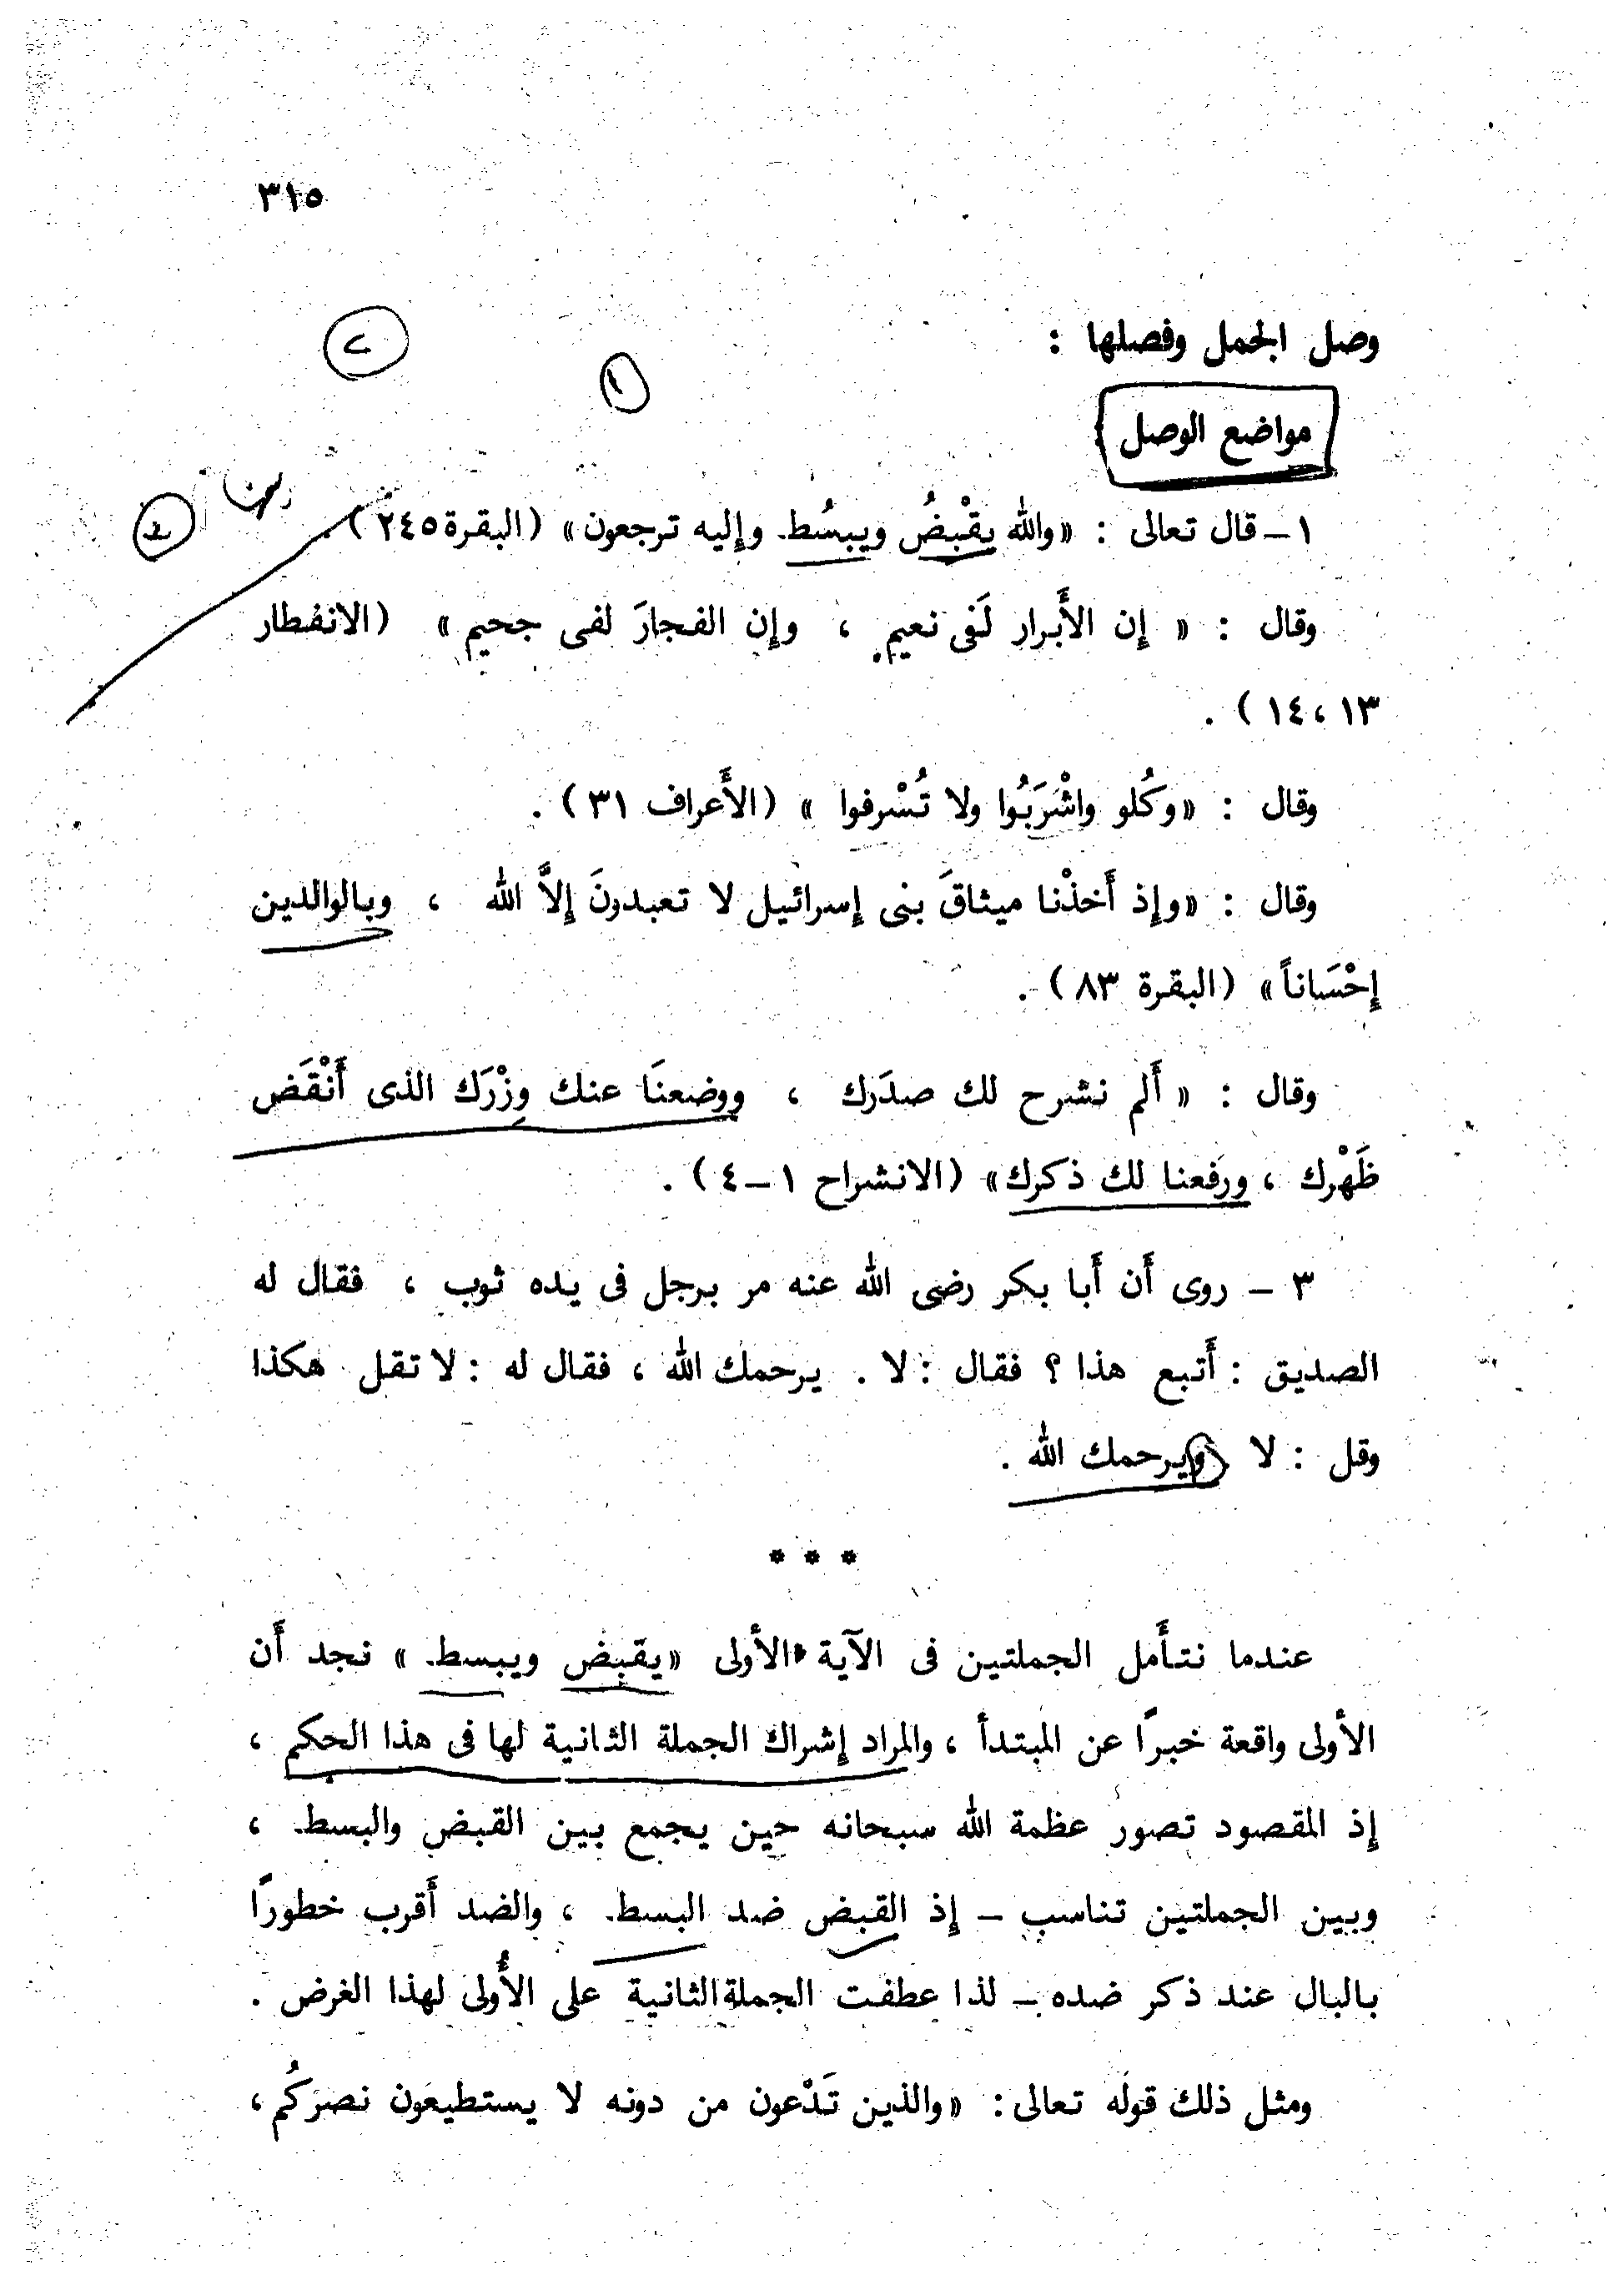 ٣١٥
وصل الجمل وفصلها :
مواضع الوصل
١ - قال تعالى : «والله يقْبِضُ ويبسُط وإليه ترجعون» (البقرة ٢٤٥) .
وقال : « إن الأَبرار لَفى نعيم ، وإن الفجارَ لفى جحيم » (الانفطار
١٣ ، ١٤ ) .
وقال : «وكُلو واشْرَبُوا ولا تُسْرفوا » (الأَعراف ٣١ ) .
وقال : «وإذ أَخذْنا ميثاقَ بنى إسرائيل لا تعبدونَ إلاَّ الله ، وبالوالدين
إحْسَاناً» (البقرة ٨٣ ) .
وقال : « أَلم نشرح لك صدَرك ، ووضعنَا عنك وِزْرَك الذى أَنْقَض
ظَهْرك ، ورفعنا لك ذكرك» (الانشراح ١ – ٤ ) .
٣ – روى أَن أَبا بكر رضى الله عنه مر برجل فى يده ثوب ، فقال له
الصديق : أَتبع هذا ؟ فقال : لا . يرحمك الله ، فقال له : لا تقل هكذا
وقل : لا ويرحمك الله .
* * *
عندما نتأَمل الجملتين فى الآية الأولى «يقبض ويبسط » نجد أَن
الأولى واقعة خبرًا عن المبتدأ ، والمراد إشراك الجملة الثانية لها فى هذا الحكم ،
إذ المقصود تصور عظمة الله سبحانه حين يجمع بين القبض والبسط ،
وبين الجملتين تناسب – إذ القبض ضد البسط ، والضد أَقرب خطورًا
بالبال عند ذكر ضده – لذا عطفت الجملة الثانية على الأُولى لهذا الغرض .
ومثل ذلك قوله تعالى : «والذين تَدْعون من دونه لا يستطيعون نصرَكُم ،